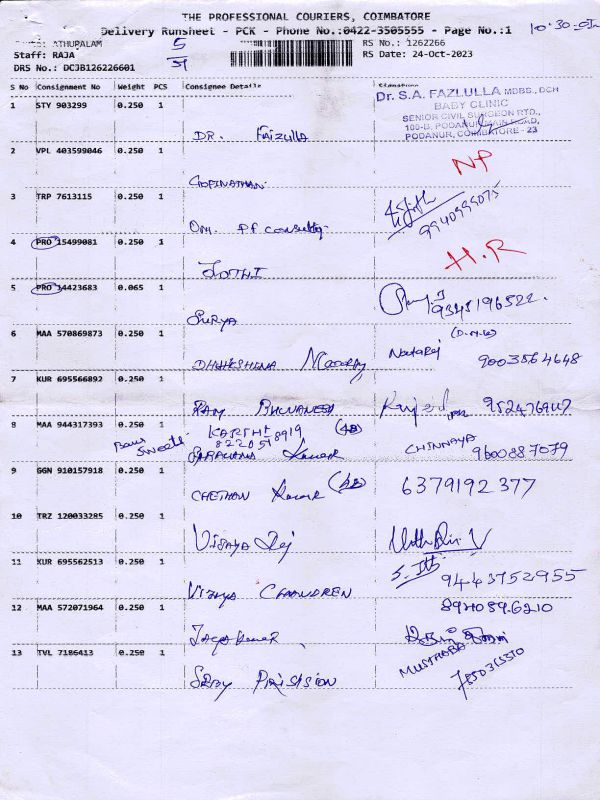 THE PROFESSIONAL COURIERS, COIMBATORE
Delivery Runsheet - PCK - Phone No.:0422-3505555 - Page No.:1
ATHUPALAM
RS No.: 1262266
Staff: RAJA
RS Date: 24-Oct-2023
DRS No.: DCJB126226601
S No Consignment No Weight PCS Consignee Details Signature
1 STY 903299 0.250 1
DR. Faizulla
Dr. S.A. FAZLULLA MBBS., DCH
BABY CLINIC
SENIOR CIVIL SURGEON RTD.,
100-B, PODANUR MAIN ROAD,
PODANUR, COIMBATORE - 23
2 VPL 403599046 0.250 1
GOPINATHAN
NP
3 TRP 7613115 0.250 1
Om. PF consulting
9940999075
4 PRO 15499081 0.250 1
JOTHI
H.R
5 PRO 14423683 0.065 1
SURYA
9345196522.
6 MAA 570869873 0.250 1
Moorthy
Nataraj
9003564648
7 KUR 695566892 0.250 1
RAM BHUVANESH
8 MAA 944317393 0.250 1
KARTHI
SARAVANA Kumar
CHINNAYA
9600887079
9 GGN 910157918 0.250 1
CHETHAN Kumar
6379192377
10 TRZ 120033285 0.250 1
Vijaya Raj
11 KUR 695562513 0.250 1
VIJAYA CHANDREN
9443752955
12 MAA 572071964 0.250 1
Jayakumar
8940896210
13 TVL 7186413 0.250 1
SRBY PRISISION